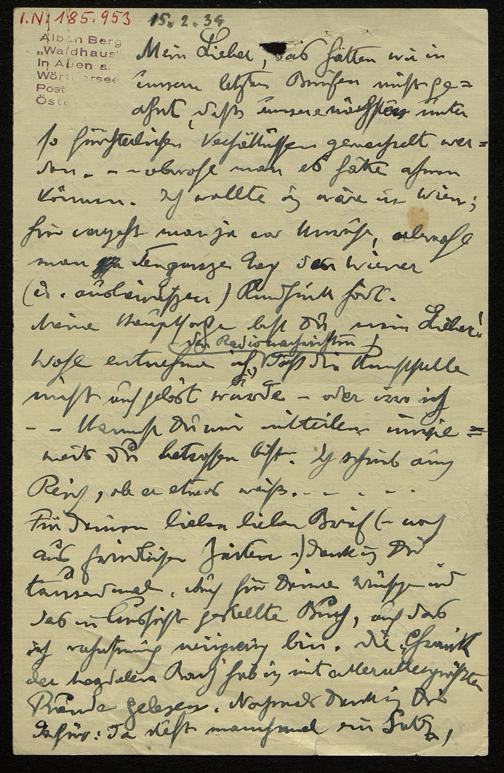 I.N. 185.953
15.2.34
Alban Berg
„Waldhaus“
in Auen am
Wörthersee
Post
Öst
Mein Lieber, das hätten wir in
unseren letzten Briefen nicht ge=
ahnt, daß unsere nächsten unter
so fürchterlichen Verhältnissen gewechselt wer=
den. – – obwohl man es hätte ahnen
können. Ich wollte ich wäre in Wien;
hier vergeht man ja vor Unruhe, obwohl
man den ganzen Tag den Wiener
(u. auswärtigen) Rundfunk hört.
Meine Hauptsorge bist Du, mein Lieber!
Wohl entnehme ich den Radionachrichten, daß die Kunststelle
nicht aufgelöst wurde – oder irre ich
– – Kannst Du mir mitteilen inwie=
weit Du betroffen bist. Ich schrieb auch
Reich, ob er etwas weiß. – – – – –
Für Deinen lieben lieben Brief (– noch
aus friedlichen Zeiten –) dank ich Dir
tausendmal. Auch für Deine Wünsche und
das in Aussicht gestellte Buch, auf das
ich wahnsinnig neugierig bin. Die Chronik
der hab ich mit allerallergrößter
Freude gelesen. Nochmals Dank ich Dir
dafür: Da steht manchmal ein Satz,